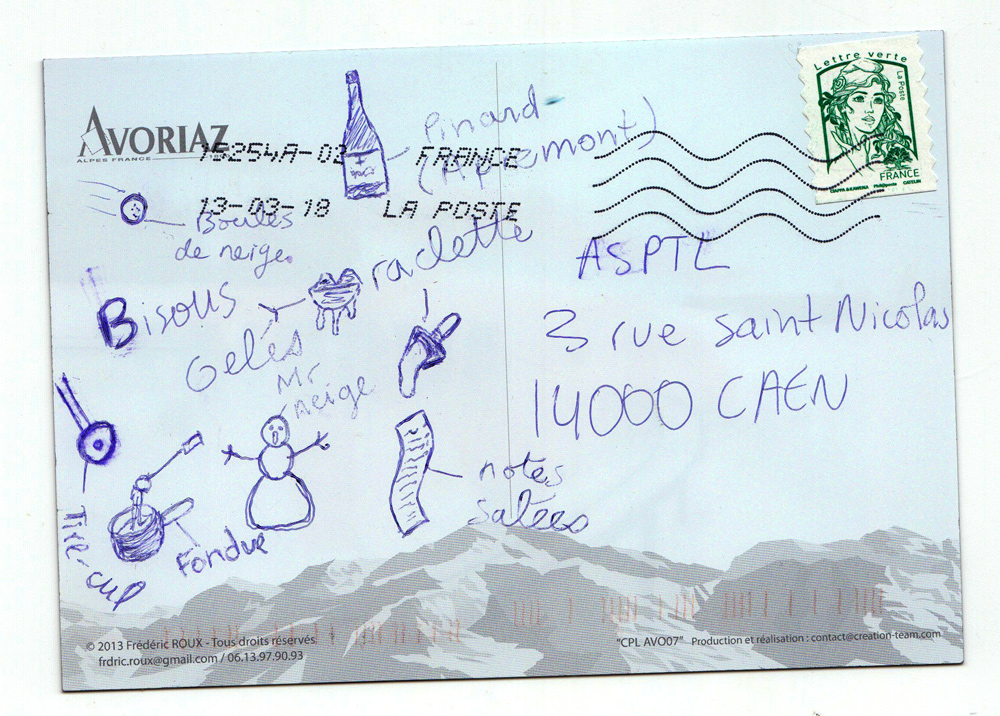 AVORIAZ
ALPES FRANCE
15254A-02 FRANCE
13-03-18 LA POSTE
Lettre verte
La Poste
FRANCE
CIAPPA & KAWENA Phil@poste CATELIN
Pinard
(Apremont)
Boules
de neige
raclette
Bisous
Gelés
Mr
neige
Tire-cul
Fondue
notes
salées
ASPTL
3 rue saint Nicolas
14000 CAEN
© 2013 Frédéric ROUX - Tous droits réservés.
frdric.roux@gmail.com / 06.13.97.90.93
"CPL AVO07" Production et réalisation : contact@creation-team.com